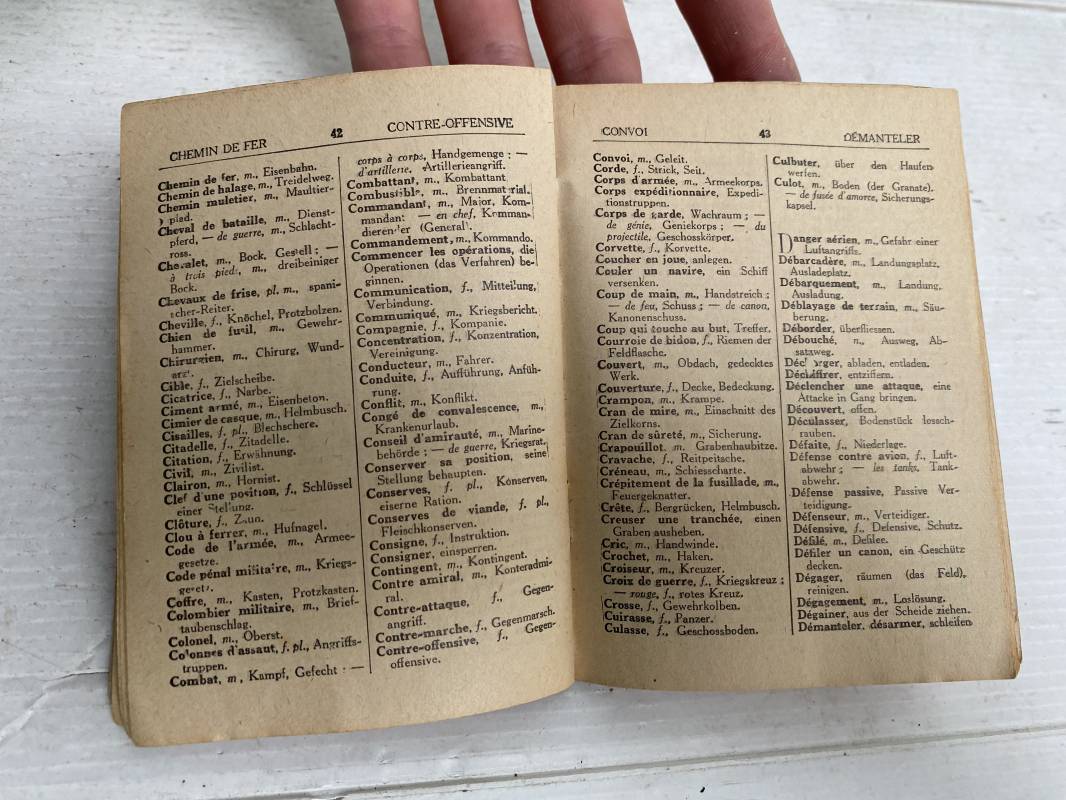 CHEMIN DE FER 42 CONTRE-OFFENSIVE
Chemin de fer, m., Eisenbahn.
Chemin de halage, m., Treidelweg.
Chemin muletier, m., Maultier-
pfad.
Cheval de bataille, m., Dienst-
pferd, — de guerre, m., Schlacht-
ross.
Chevalet, m., Bock, Gestell; —
à trois pieds, m., dreibeiniger
Bock.
Chevaux de frise, pl. m., spani-
scher-Reiter.
Cheville, f., Knöchel, Protzbolzen.
Chien de fusil, m., Gewehr-
hammer.
Chirurgien, m., Chirurg, Wund-
arzt.
Cible, f., Zielscheibe.
Cicatrice, f., Narbe.
Ciment armé, m., Eisenbeton.
Cimier de casque, m., Helmbusch.
Cisailles, f. pl., Blechschere.
Citadelle, f., Zitadelle.
Citation, f., Erwähnung.
Civil, m., Zivilist.
Clairon, m., Hornist.
Clef d'une position, f., Schlüssel
einer Stellung.
Clôture, f., Zaun.
Clou à ferrer, m., Hufnagel.
Code de l'armée, m., Armee-
gesetze.
Code pénal militaire, m., Kriegs-
gesetz.
Coffre, m., Kasten, Protzkasten.
Colombier militaire, m., Brief-
taubenschlag.
Colonel, m., Oberst.
Colonnes d'assaut, f. pl., Angriffs-
truppen.
Combat, m, Kampf, Gefecht: —
corps à corps, Handgemenge: —
d'artillerie, Artillerieangriff.
Combattant, m., Kombattant
Combustible, m., Brennmaterial.
Commandant, m., Major, Kom-
mandant: — en chef, Komman-
dierender (General).
Commandement, m., Kommando.
Commencer les opérations, die
Operationen (das Verfahren) be-
ginnen.
Communication, f., Mitteilung,
Verbindung.
Communiqué, m., Kriegsbericht.
Compagnie, f., Kompanie.
Concentration, f., Konzentration,
Vereinigung.
Conducteur, m., Fahrer.
Conduite, f., Aufführung, Anfüh-
rung.
Conflit, m., Konflikt.
Congé de convalescence, m.,
Krankenurlaub.
Conseil d'amirauté, m., Marine-
behörde: — de guerre, Kriegsrat.
Conserver sa position, seine
Stellung behaupten.
Conserves, f. pl., Konserven,
eiserne Ration.
Conserves de viande, f. pl.,
Fleischkonserven.
Consigne, f., Instruktion.
Consigner, einsperren.
Contingent, m., Kontingent.
Contre amiral, m., Konteradmi-
ral.
Contre-attaque, f., Gegen-
angriff.
Contre-marche, f., Gegenmarsch.
Contre-offensive, f., Gegen-
offensive.
CONVOI 43 DÉMANTELER
Convoi, m., Geleit.
Corde, f., Strick, Seit.
Corps d'armée, m., Armeekorps.
Corps expéditionnaire, Expedi-
tionstruppen.
Corps de garde, Wachraum; —
de génie, Geniekorps; — du
projectile, Geschosskörper.
Corvette, f., Korvette.
Coucher en joue, anlegen.
Couler un navire, ein Schiff
versenken.
Coup de main, m., Handstreich;
— de feu, Schuss; — de canon,
Kanonenschuss.
Coup qui touche au but, Treffer.
Courroie de bidon, f., Riemen der
Feldflasche.
Couvert, m., Obdach, gedecktes
Werk.
Couverture, f., Decke, Bedeckung.
Crampon, m., Krampe.
Cran de mire, m., Einschnitt des
Zielkorns.
Cran de sûreté, m., Sicherung.
Crapouillot, m. Grabenhaubitze.
Cravache, f., Reitpeitsche.
Créneau, m., Schiesscharte.
Crépitement de la fusillade, m.,
Feuergeknatter.
Crête, f., Bergrücken, Helmbusch.
Creuser une tranchée, einen
Graben ausheben.
Cric, m., Handwinde.
Crochet, m., Haken.
Croiseur, m., Kreuzer.
Croix de guerre, f., Kriegskreuz;
— rouge, f., rotes Kreuz.
Crosse, f., Gewehrkolben.
Cuirasse, f., Panzer.
Culasse, f., Geschossboden.
Culbuter, über den Haufen
werfen.
Culot, m., Boden (der Granate).
— de fusée d'amorce, Sicherungs-
kapsel.
Danger aérien, m., Gefahr einer
Luftangriffs.
Débarcadère, m., Landungsplatz,
Ausladeplatz.
Débarquement, m., Landung,
Ausladung.
Déblayage de terrain, m., Säu-
berung.
Déborder, überfliessen.
Débouché, n., Ausweg, Ab-
satzweg.
Décharger, abladen, entladen.
Déchiffrer, entziffern.
Déclencher une attaque, eine
Attacke in Gang bringen.
Découvert, offen.
Déculasser, Bodenstück losch-
rauben.
Défaite, f., Niederlage.
Défense contre avion, f., Luft-
abwehr; — les tanks, Tank-
abwehr.
Défense passive, Passive Ver-
teidigung.
Défenseur, m., Verteidiger.
Défensive, f., Defensive, Schutz.
Défilé, m., Defilee.
Défiler un canon, ein Geschütz
decken.
Dégager, räumen (das Feld),
reinigen.
Dégagement, m., Loslösung.
Dégainer, aus der Scheide ziehen.
Démanteler, désarmer, schleifen